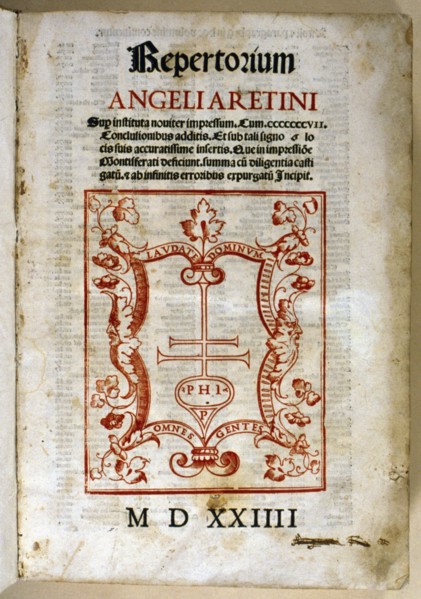 Repertorium
ANGELI ARETINI
Sup instituta noviter impressum. Cum. ccccccc VII.
Conclusionibus additis. Et sub tali signo lo
cis suis accuratissime insertis. Que in impressiōe
Montisferati deficiunt. summa cū diligentia casti
gatū. & ab infinitis erroribus expurgatū Incipit.
LAVDATE DOMINVM
P H I
P
OMNES GENTES
M D XXIIII